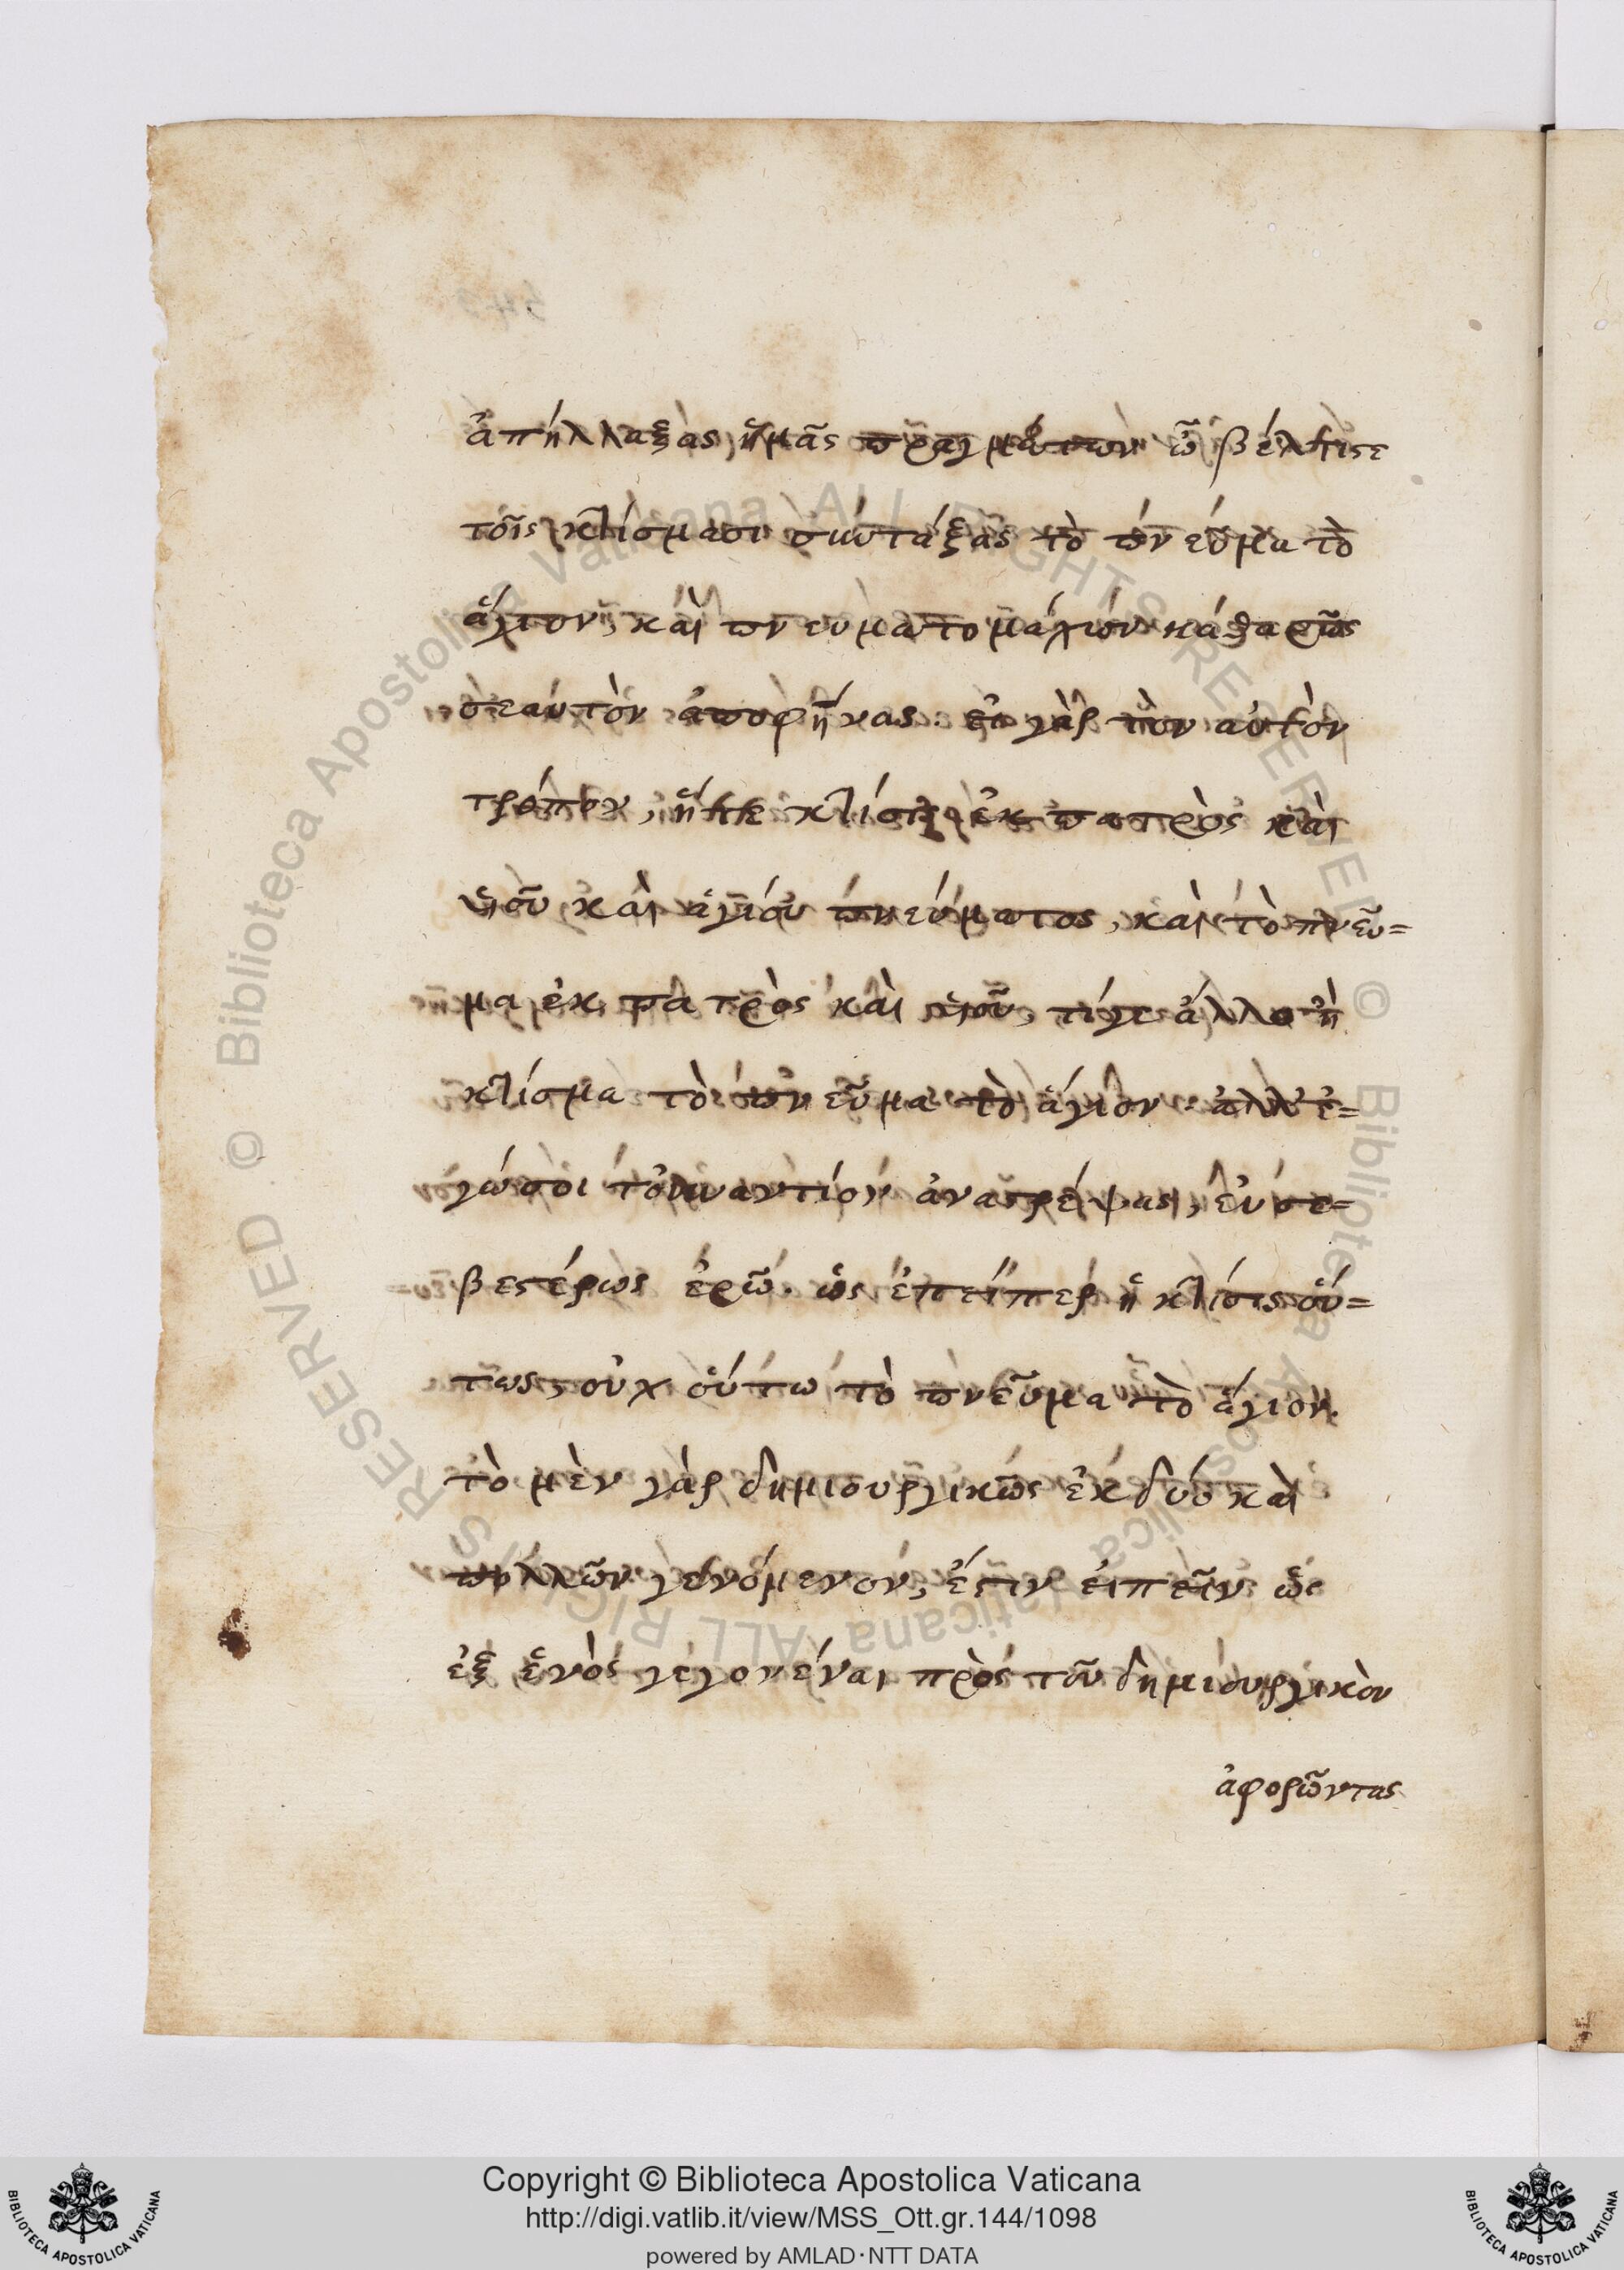 ἀπήλλαξας ἡμᾶς πραγμάτων ὦ βέλτιστε
τοῖς κτίσμασι συντάξας τὸ πνεύμα τὸ
ἅγιον, καὶ πνευματομάχων καθαρῶς
σεαυτὸν ἀποφήνας. εἰ γὰρ τὸν αὐτὸν
τρόπον, ἥτε κτίσις ἐκ πατρὸς καὶ
υἱοῦ καὶ ἁγίου πνεύματος, καὶ τὸ πνεῦ=
μα ἐκ πατρὸς καὶ υἱοῦ, τίγε ἄλλο ἢ
κτίσμα τὸ πνεῦμα τὸ ἅγιον. ἀλλ' ἐ=
γώ σοι τοὐναντίον ἀναστρέψας, εὐσε=
βεστέρως ἐρῶ. ὡς ἐπείπερ ἡ κτίσις οὕ=
τως, οὐχ οὕτω τὸ πνεῦμα τὸ ἅγιον.
τὸ μὲν γὰρ δημιουργικῶς ἐκ δύο καὶ
πολλῶν γενόμενον, ἔστιν εἰπεῖν ὡς
ἐξ ἑνὸς γεγονέναι πρὸς τοῦ δημιουργικὸν
ἀφορῶντας
Copyright © Biblioteca Apostolica Vaticana
http://digi.vatlib.it/view/MSS_Ott.gr.144/1098
powered by AMLAD·NTT DATA